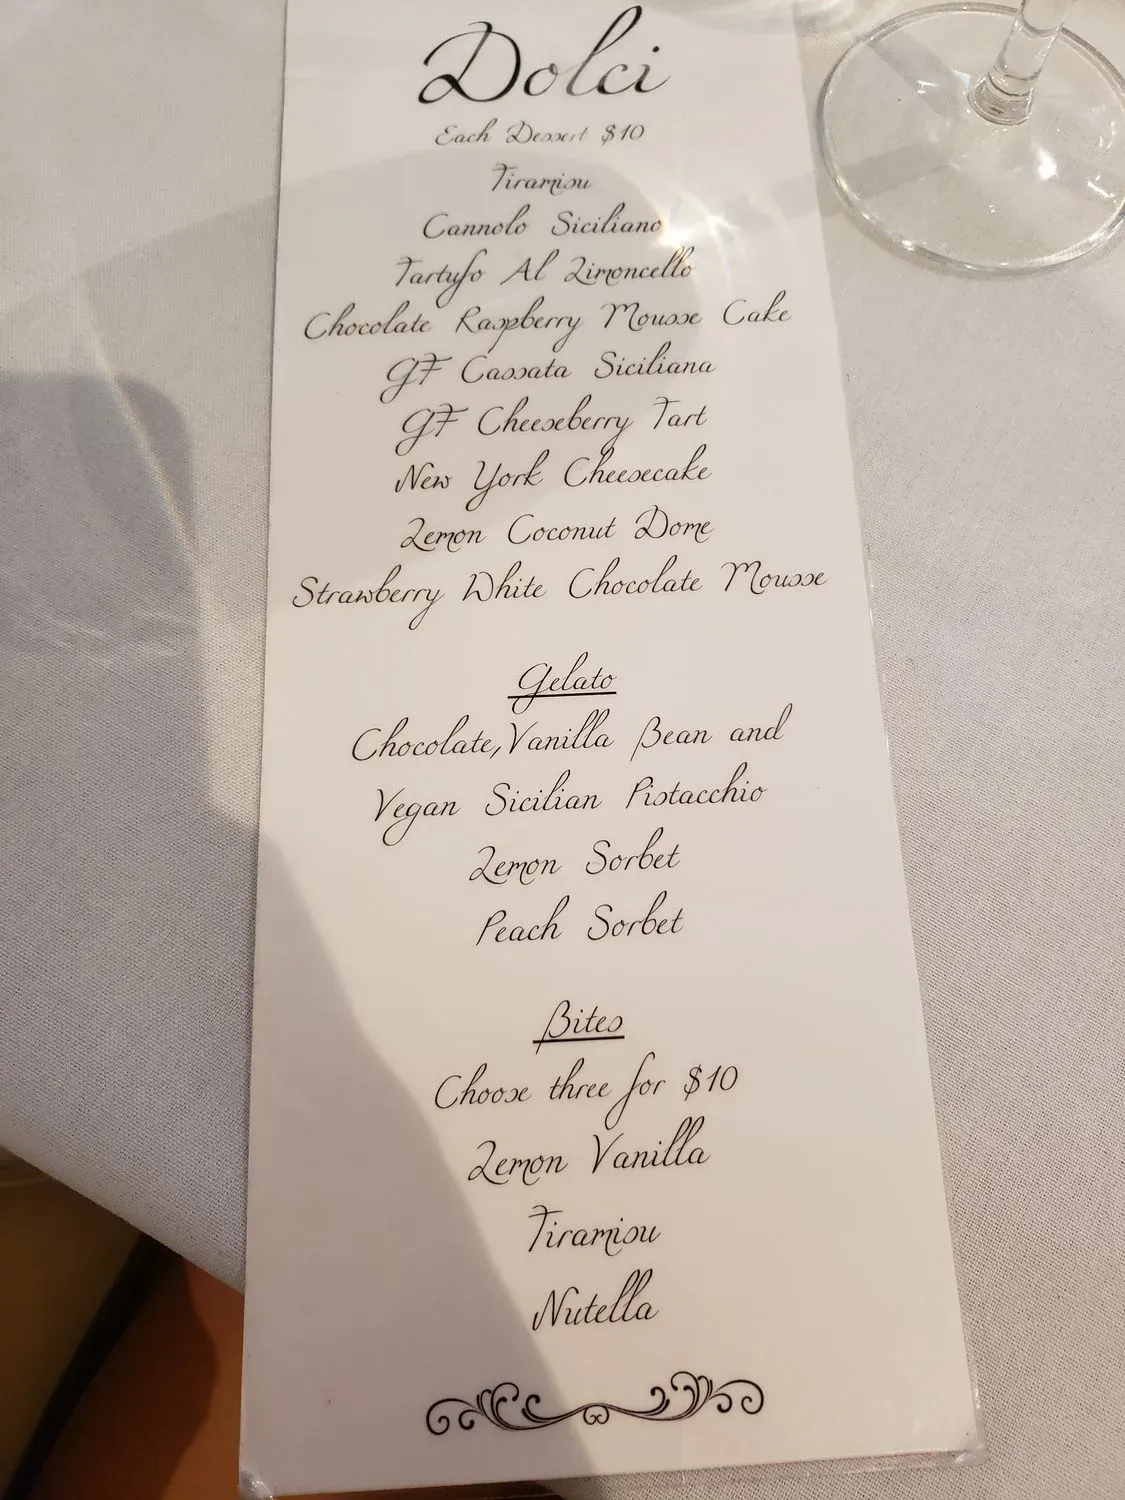 Dolci
Each Dessert $10
Tiramisu
Cannolo Siciliano
Tartufo Al Limoncello
Chocolate Raspberry Mousse Cake
GF Cassata Siciliana
GF Cheeseberry Tart
New York Cheesecake
Lemon Coconut Dome
Strawberry White Chocolate Mousse
Gelato
Chocolate, Vanilla Bean and
Vegan Sicilian Pistacchio
Lemon Sorbet
Peach Sorbet
Bites
Choose three for $10
Lemon Vanilla
Tiramisu
Nutella